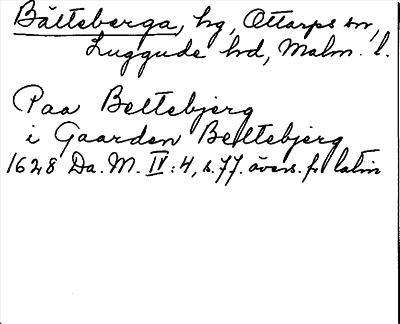 Bälteberga, hg, Ottarps sn,
Luggude hd, Malm. l.
Paa Beltebjerg
i Gaarden Beltebjerg
1628 Da. M. IV:4, s. 77. övers. fr. latin